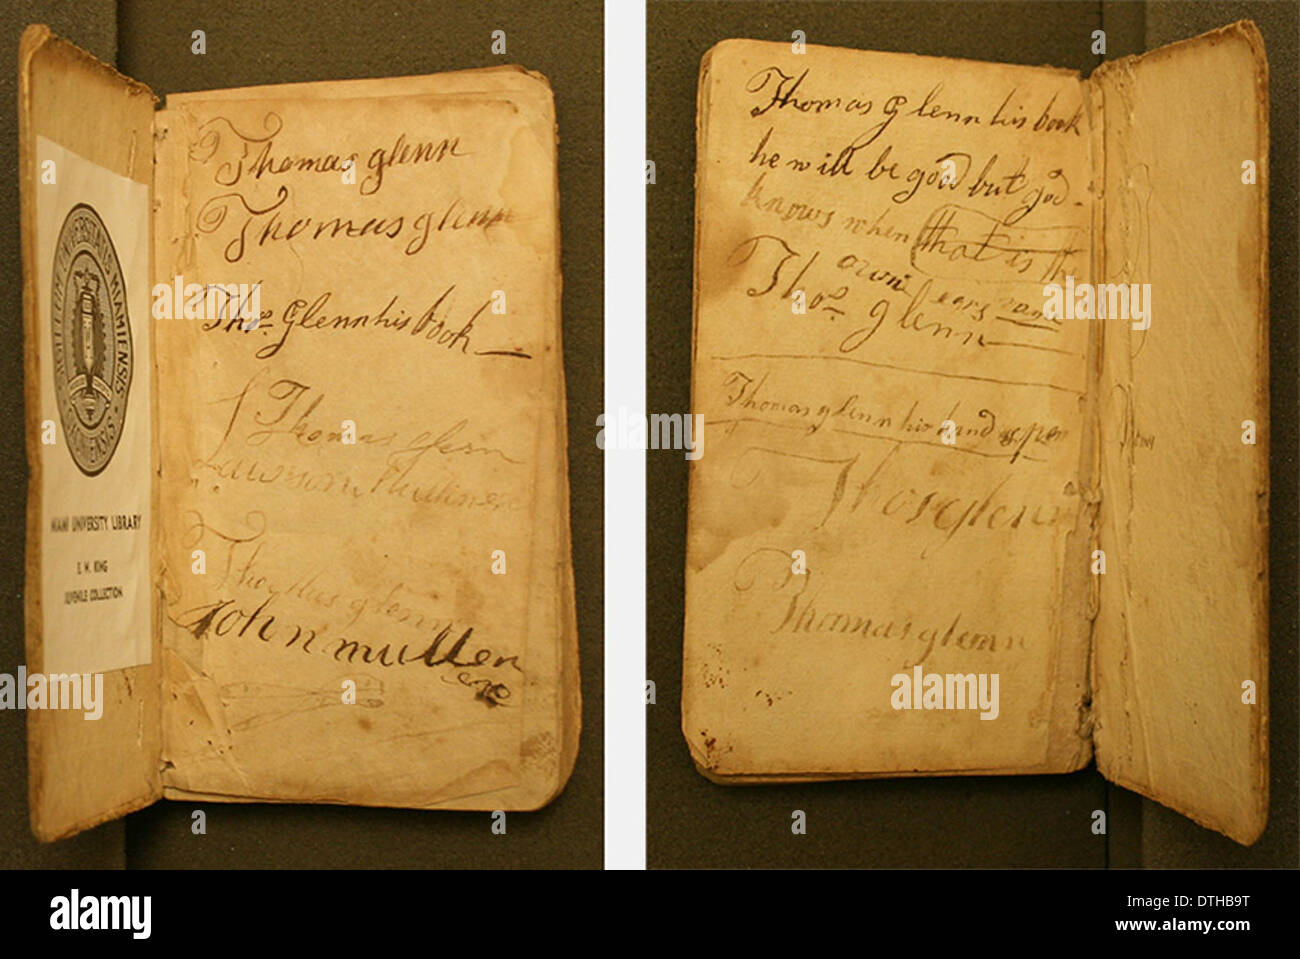 SIGILLUM UNIVERSITATIS MIAMIENSIS
MIAMI UNIVERSITY LIBRARY
E. W. KING
JUVENILE COLLECTION
Thomas glenn
Thomas glenn
Thos. Glenn his book
Thomas glenn
Lawson
glenn
John mullen
Thomas Glenn his book
he will be good but god
knows when that is the
own
Thos. glenn
Thomas glenn his hand & pen
Thos glenn
Thomas glenn
a alamy
alamy
Image ID: DTHB9T
www.alamy.com